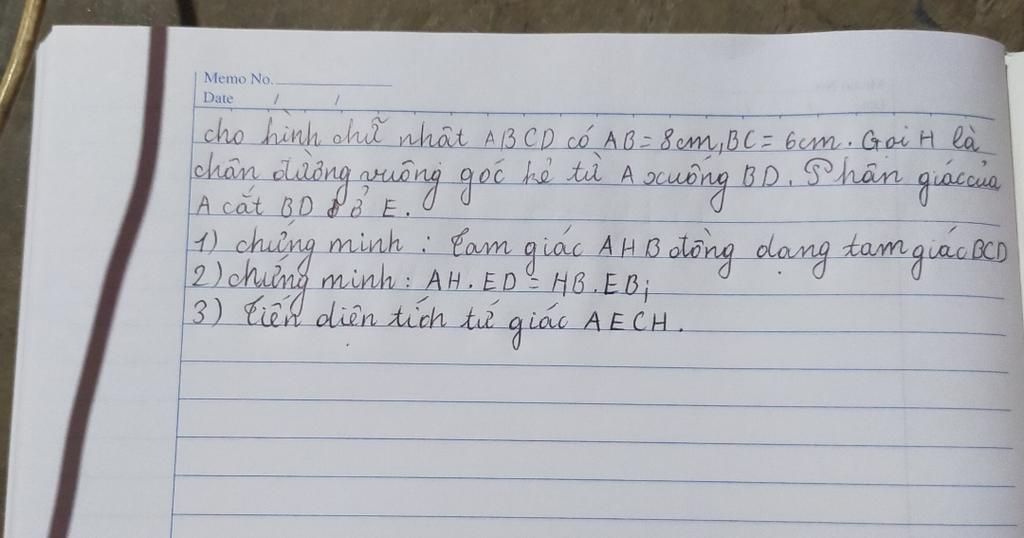 Memo No.
Date / /
cho hình chữ nhật ABCD có AB = 8cm, BC = 6cm. Gọi H là
chân đường vuông góc kẻ từ A xuống BD. Phân giác của
A cắt BD ở E.
1) chứng minh: tam giác AHB đồng dạng tam giác BCD
2) chứng minh: AH.ED = HB.EB;
3) tiến diên tích tứ giác AECH.